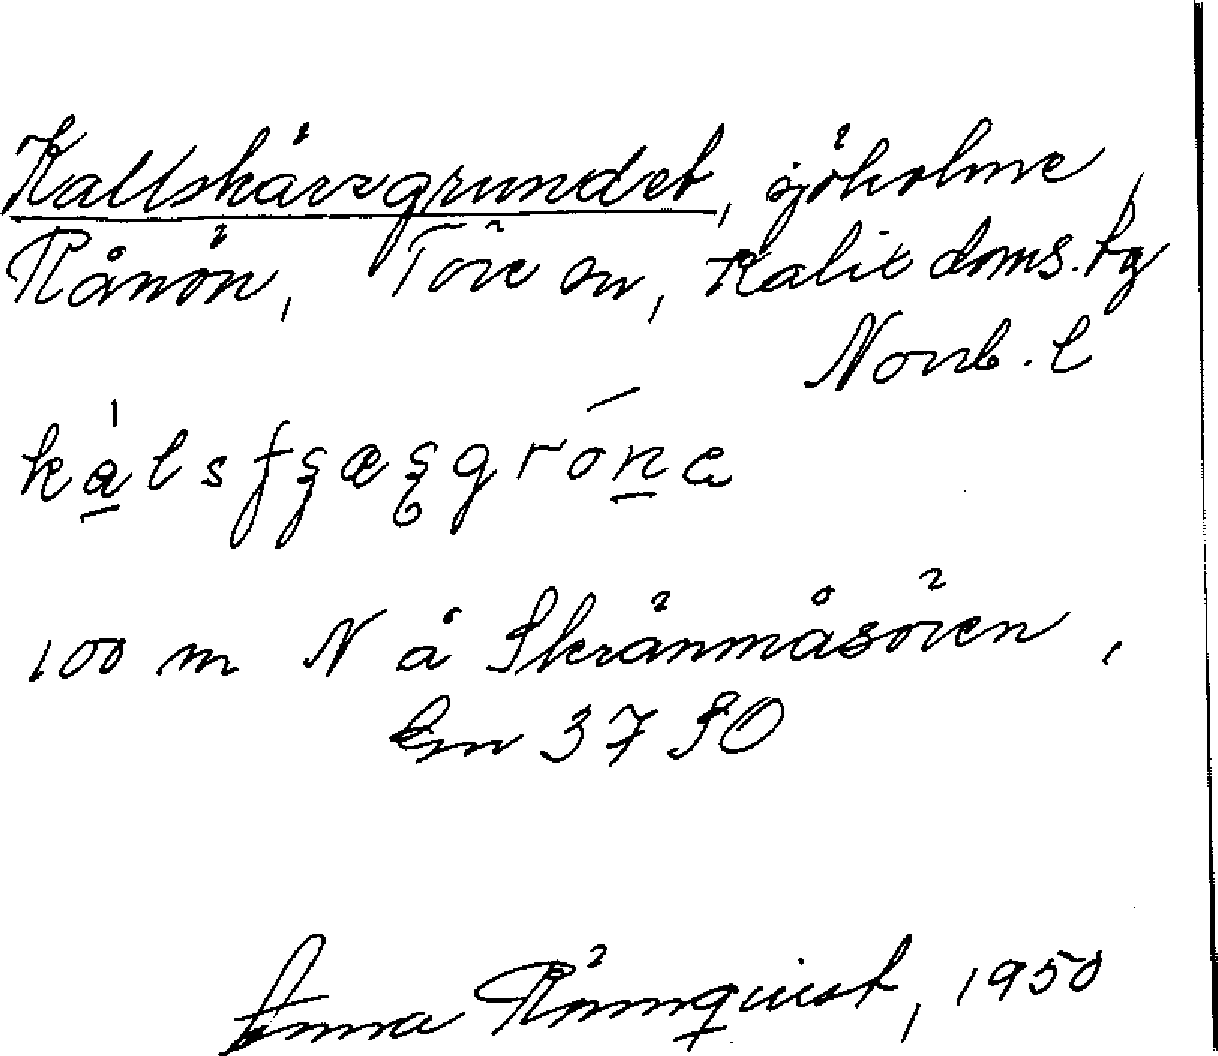 Kallskärsgrundet, sjöholme,
Rånön, Töre sn, Kalix doms.tg
Norrb. l
100 m N å Skränmåsören,
Em 37 SO
Anna Rönnquist, 1950